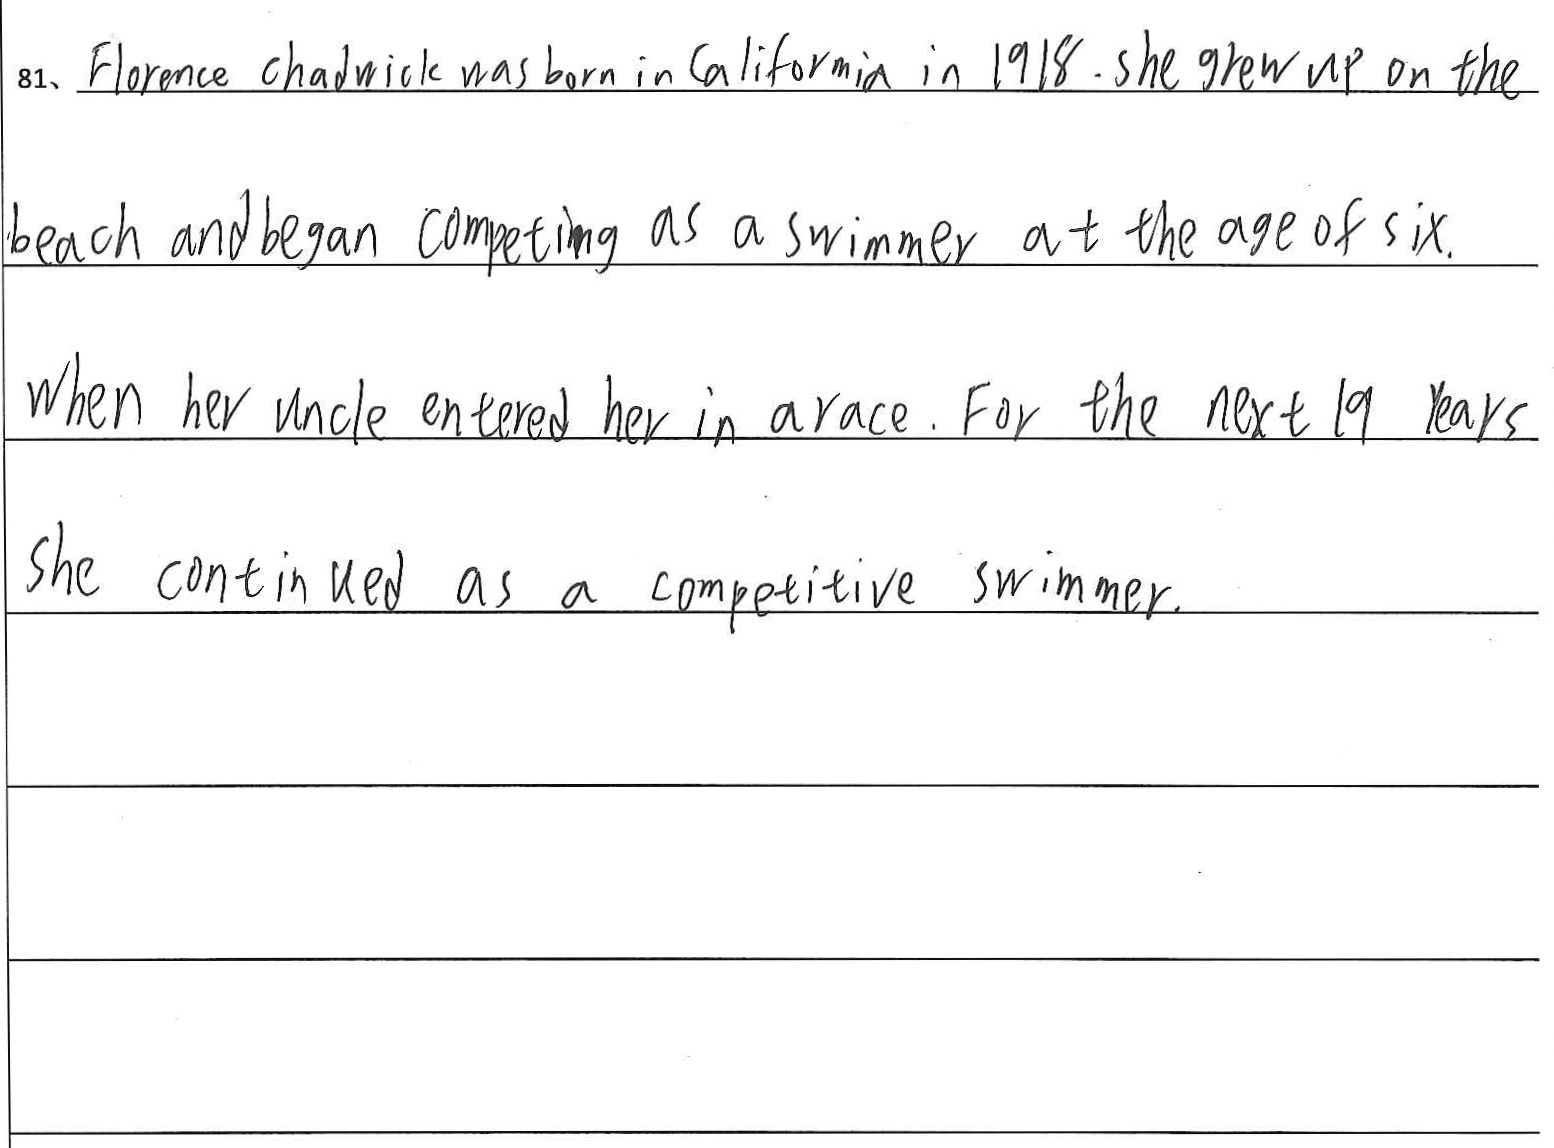 81、Florence chadwick was born in California in 1918. she grew up on the
beach and began competing as a swimmer at the age of six.
When her uncle entered her in a race. For the next 19 Years
She continued as a competitive swimmer.